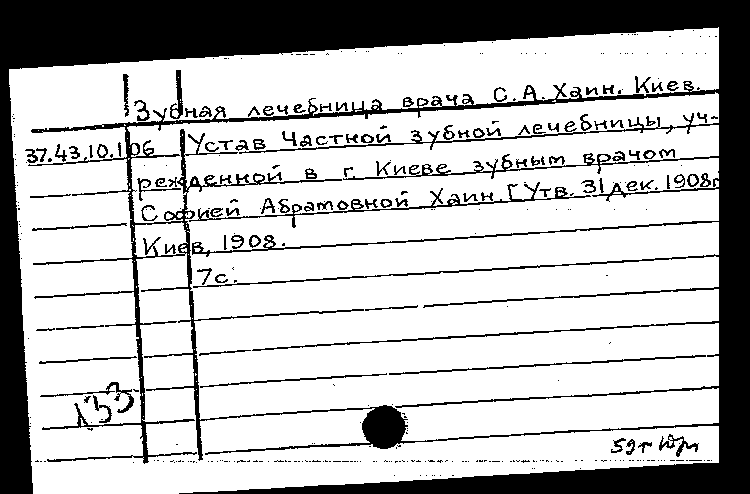 Зубная лечебница врача С.А.Хаин. Киев.
37.43.10.106 Устав Частной зубной лечебницы, уч-
режденной в г. Киеве зубным врачом
Софией Абрамовной Хаин. [Утв. 31 дек. 1908г
Киев, 1908.
7с.
133
59г